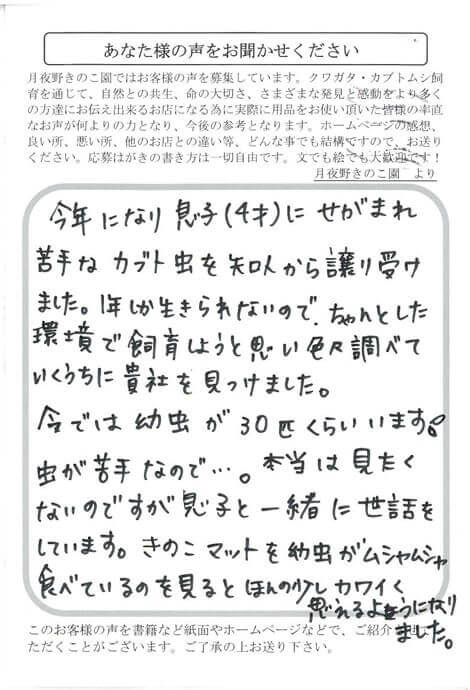 あなた様の声をお聞かせください
月夜野きのこ園ではお客様の声を募集しています。クワガタ・カブトムシ飼
育を通じて、自然との共生、命の大切さ、さまざまな発見と感動をより多く
の方達にお伝え出来るお店になる為に実際に用品をお使い頂いた皆様の率直
なお声が何よりの力となり、今後の参考となります。ホームページの感想、
良い所、悪い所、他のお店との違い等、どんな事でも結構ですので、お送り
ください。応募はがきの書き方は一切自由です。文でも絵でも大歓迎です！
月夜野きのこ園 より
今年になり息子(4才)にせがまれ
苦手なカブト虫を知人から譲り受け
ました。1年しか生きられないので、ちゃんとした
環境で飼育しようと思い色々調べて
いくうちに貴社を見つけました。
今では幼虫が30匹くらいいます。
虫が苦手なので…。本当は見たく
ないのですが息子と一緒に世話を
しています。きのこマットを幼虫がムシャムシャ
食べているのを見るとほんの少しカワイく
思れるようになり
ました。
このお客様の声を書籍など紙面やホームページなどで、ご紹介させて
ただくことがございます。ご了承の上お送り下さい。